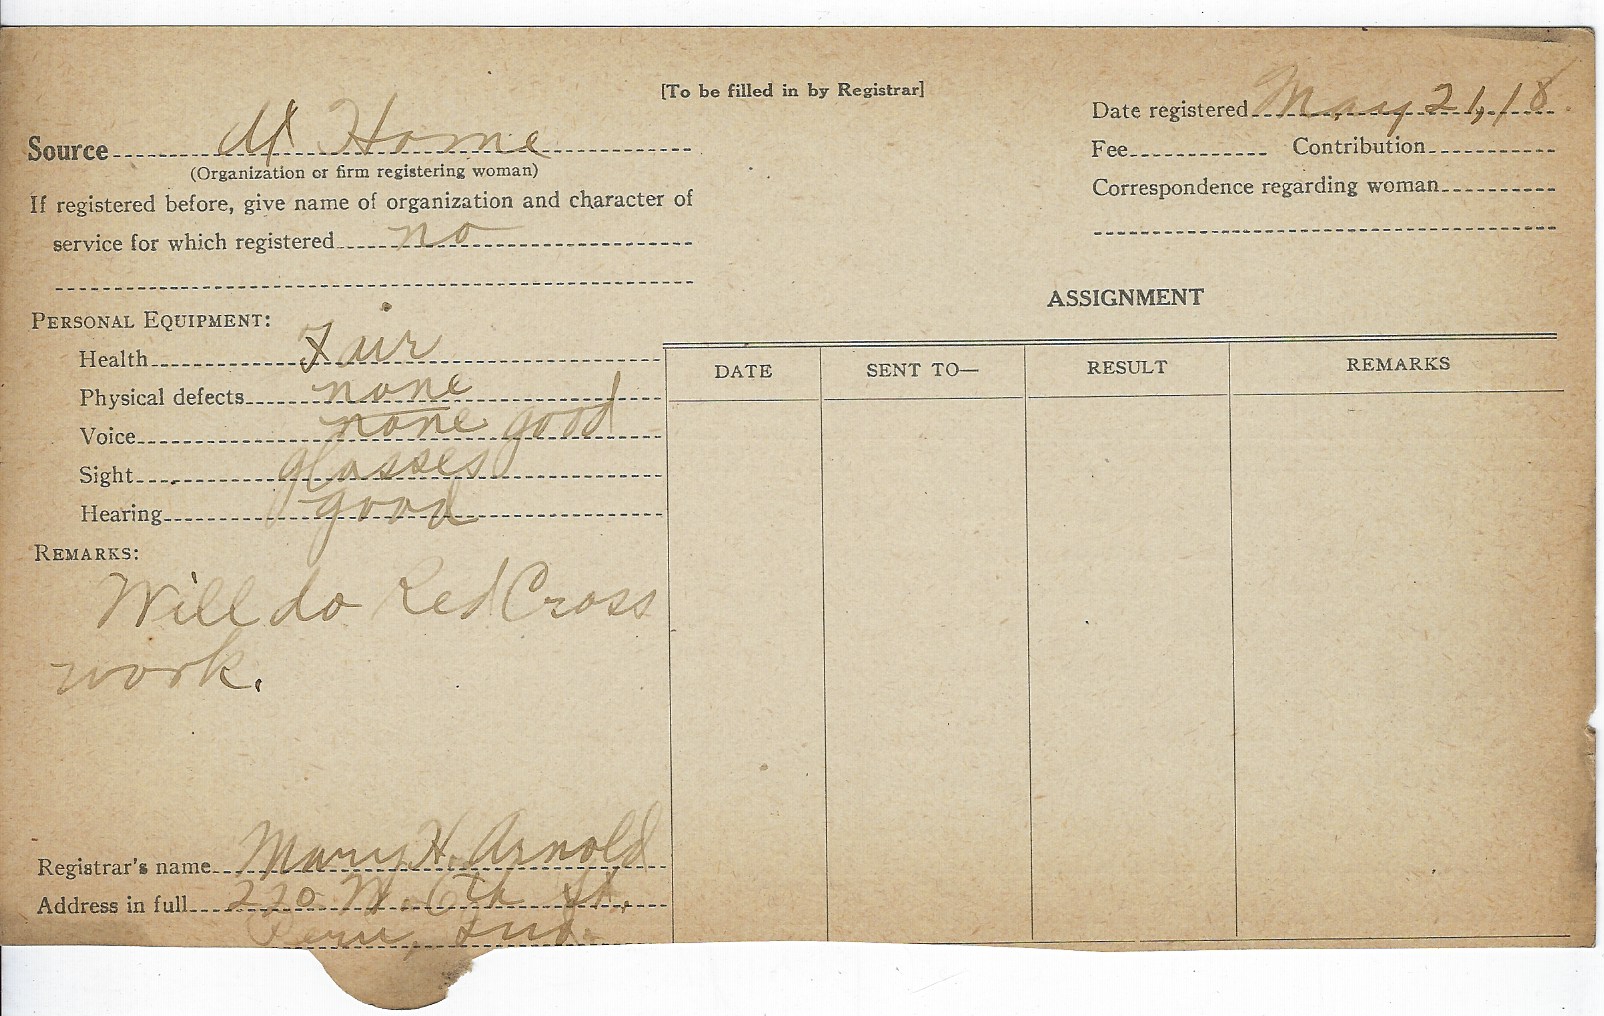 [To be filled in by Registrar]
Date registered May 21, 18.
Source At Home
(Organization or firm registering woman)
Fee Contribution
If registered before, give name of organization and character of
service for which registered no
Correspondence regarding woman
ASSIGNMENT
PERSONAL EQUIPMENT:
Health Fair
Physical defects none
Voice none good
Sight glasses
Hearing good
DATE SENT TO— RESULT REMARKS
REMARKS:
Will do Red Cross
work.
Registrar's name Mary H. Arnold
Address in full 220 W. 6th St.
Peru, Ind.